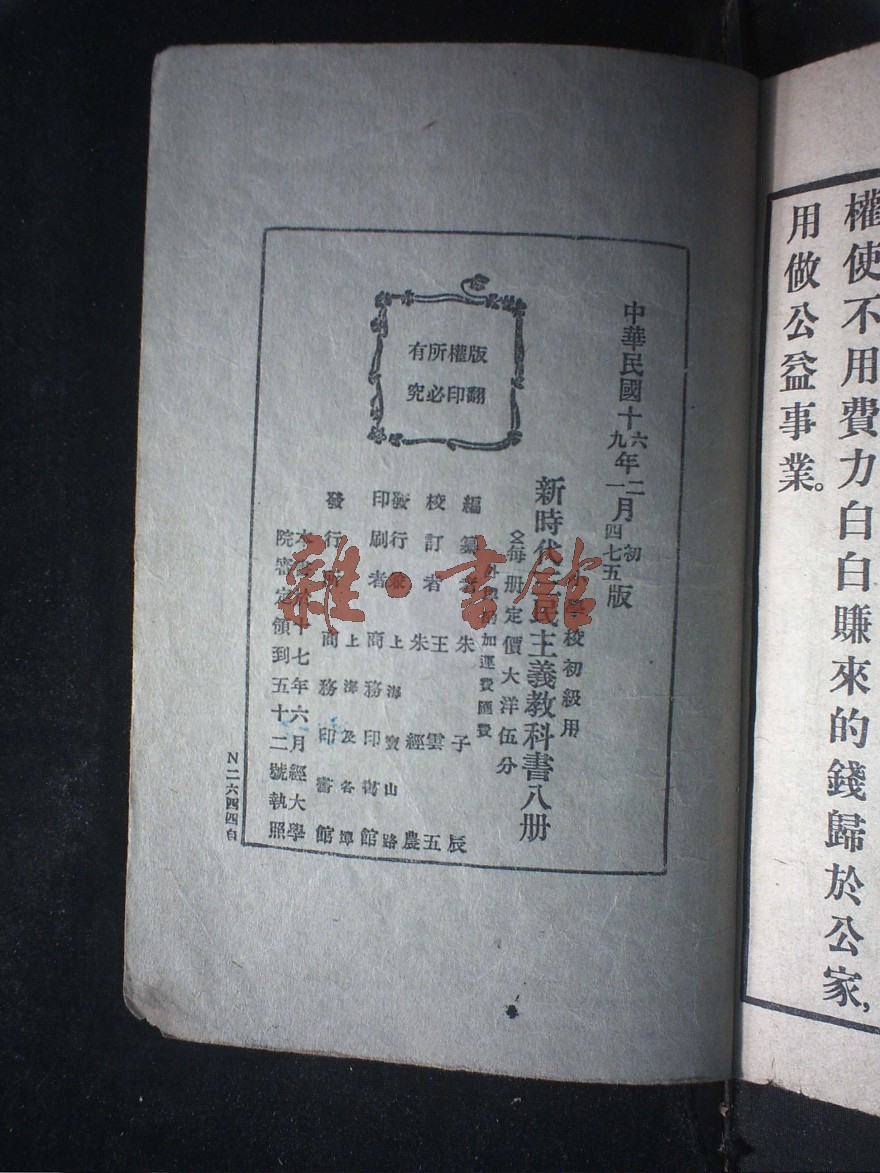 權使不用費力白白賺來的錢歸於公家，
用做公益事業。
中華民國十六年二月初版
九年一月四七五版
學校初級用
新時代三民主義教科書八册
每册定價大洋伍分
加運費匯費
版權所有
翻印必究
編纂者 朱子辰
校訂者 王雲五 朱經農
發行兼印刷者 上海寶山路 商務印書館
發行所 上海及各埠 商務印書館
十七年六月經大學
院審定領到五十二號執照
N二六四四自
雜·書館